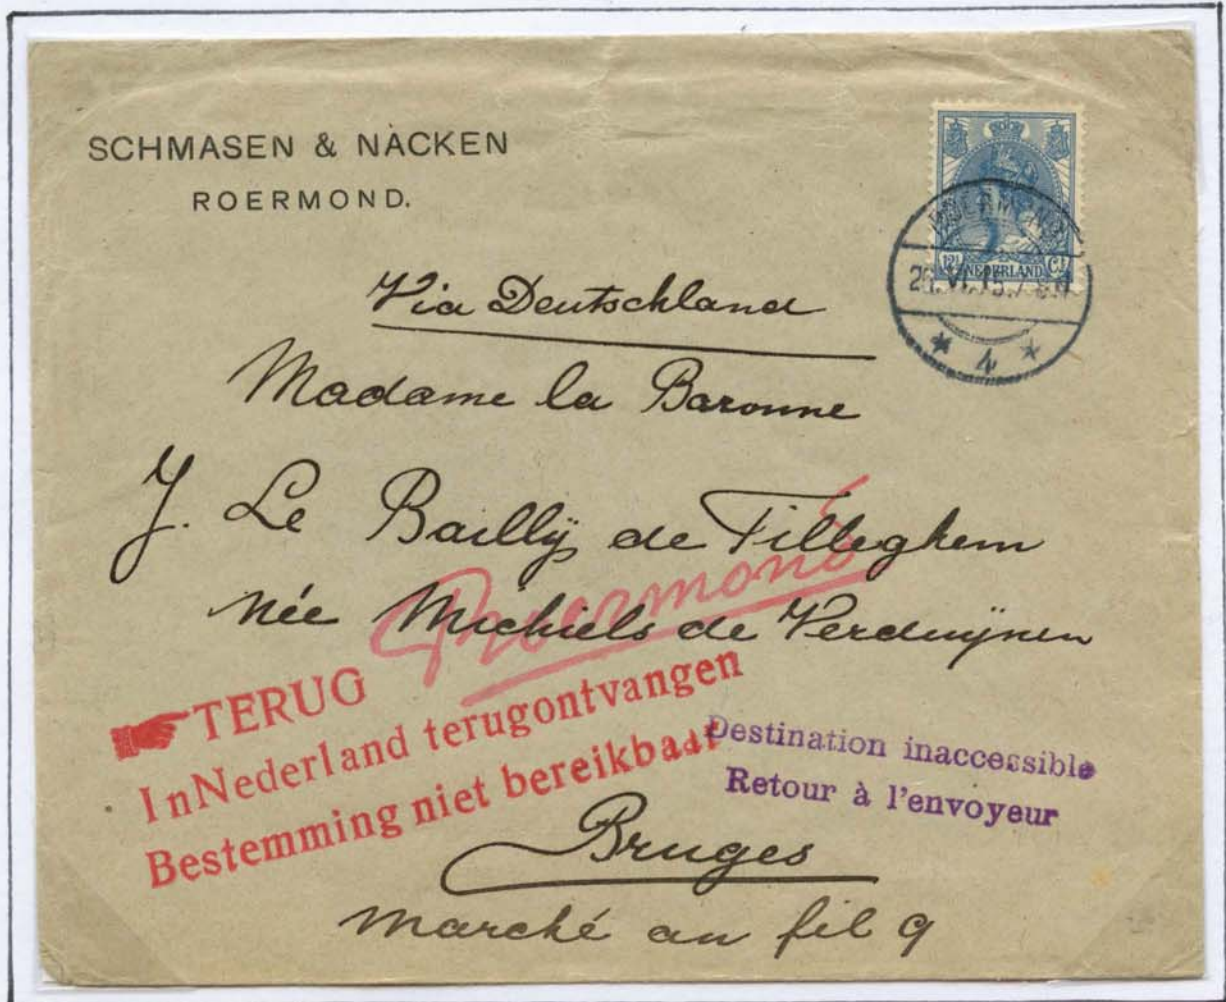 SCHMASEN & NACKEN
ROERMOND.
12½ NEDERLAND Ct
ROERMOND
4
Via Deutschland
Madame la Baronne
J. Le Bailly de Tilleghem
née Michiels de Verduijnen
Roermond
TERUG
In Nederland terugontvangen
Bestemming niet bereikbaar
Destination inaccessible
Retour à l'envoyeur
Bruges
Marché au fil 9